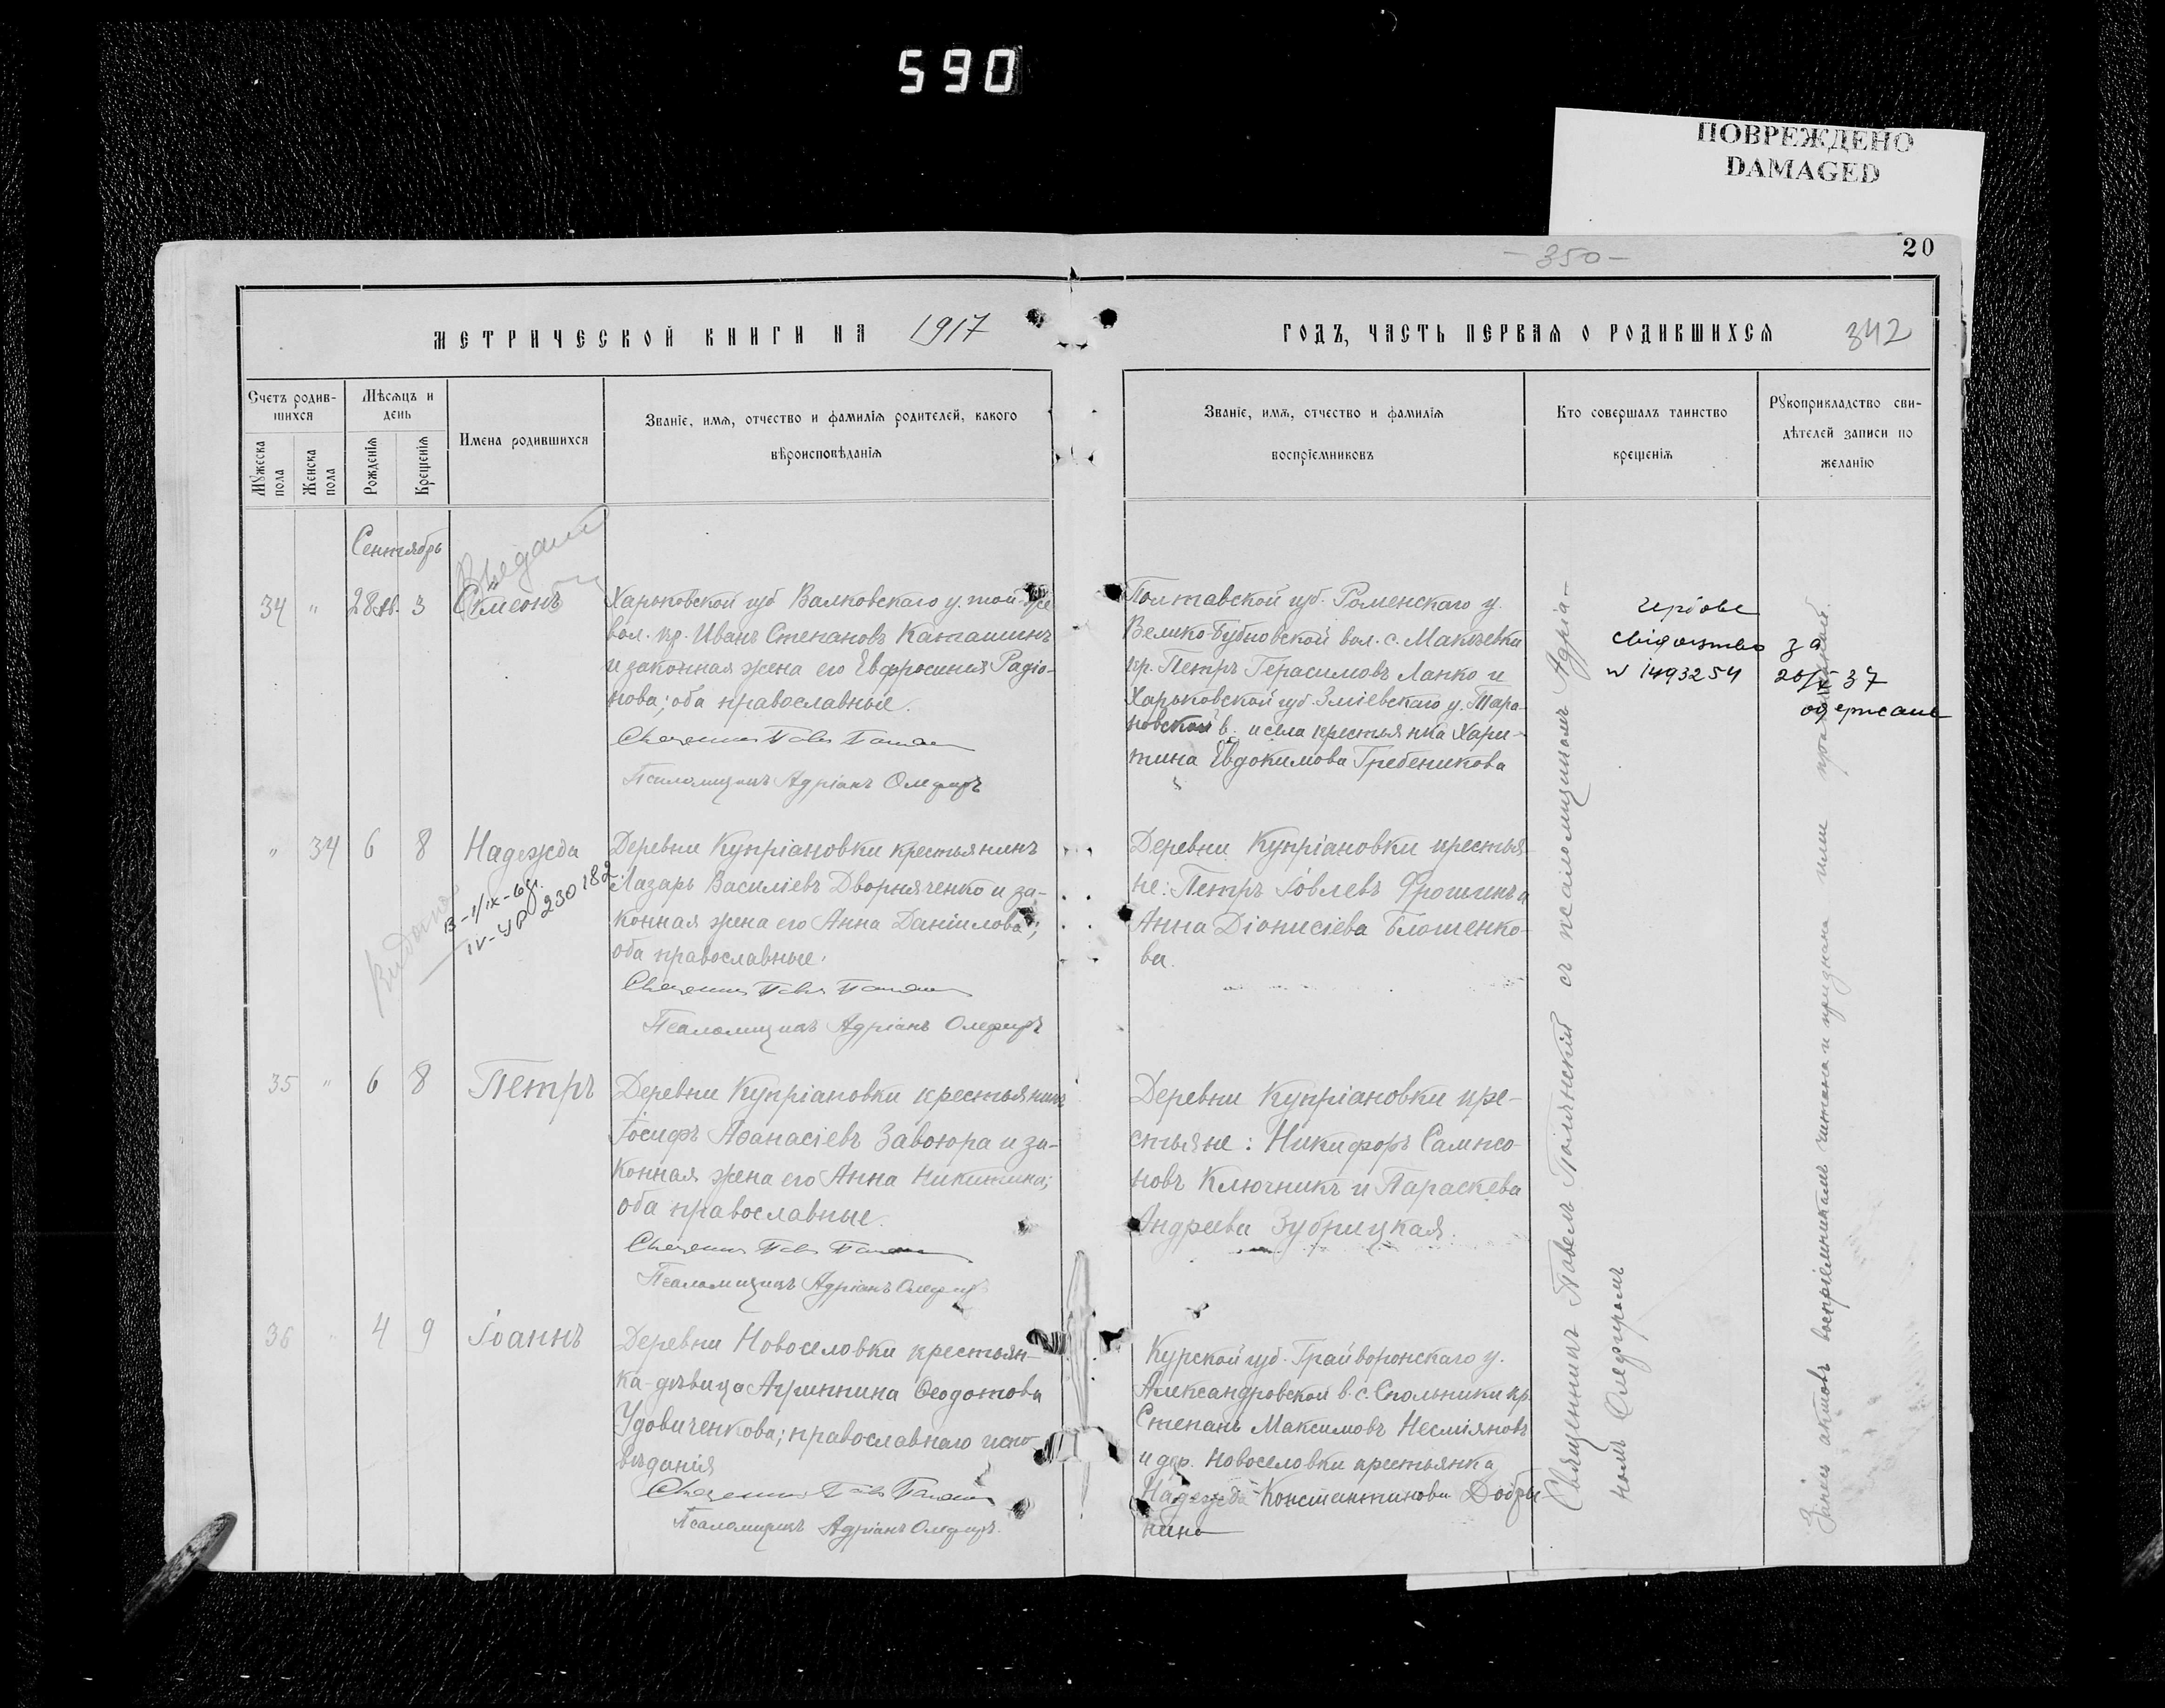 590
ПОВРЕЖДЕНО
DAMAGED
20
-350-
МЕТРИЧЕСКОЙ КНИГИ НА 1917
ГОДЪ, ЧАСТЬ ПЕРВАЯ О РОДИВШИХСЯ
342
Счетъ родив-
шихся
Мужеска
пола
Женска
пола
Мѣсяцъ и
день
Рожденія
Крещенія
Имена родившихся
Званіе, имя, отчество и фамилія родителей, какого
вѣроисповѣданія
Званіе, имя, отчество и фамилія
воспріемниковъ
Кто совершалъ таинство
крещенія
Рукоприкладство сви-
дѣтелей записи по
желанію
Сентябрь
34 " 28 Ав. 3 Сѵмеонъ
Харьковской губ Валковскаго у. той-же
вол. кр. Иванъ Степановъ Каташинъ
и законная жена его Евфросинія Радіо-
нова; оба православные.
Псаломщикъ Адріанъ Олефиръ
Полтавской губ. Роменскаго у.
Велико-Бубновской вол. с. Макѣевки
кр. Петръ Герасимовъ Лапко и
Харьковской губ. Зміевскаго у. Тара-
новской в. и села крестьянка Хари-
тина Евдокимова Гребеникова
свідоцтво за
№ 1493254 20/X 37
одержане
" 34 6 8 Надежда
Видано
В-1/IX-61.
IV-УР 230182
Деревни Купріановки крестьянинъ
Лазарь Василіевъ Дворниченко и за-
конная жена его Анна Даніилова;
оба православные.
Псаломщикъ Адріанъ Олефиръ
Деревни Купріановки крестья-
не: Петръ Іовлевъ Фрошинъ и
Анна Діонисіева Блошенко-
ва.
35 " 6 8 Петръ
Деревни Купріановки крестьянинъ
Іосифъ Аѳанасіевъ Завоюра и за-
конная жена его Анна Никитина;
оба православные.
Псаломщикъ Адріанъ Олефиръ
Деревни Купріановки кре-
стьяне: Никифоръ Сампсо-
новъ Ключникъ и Параскева
Андреева Зубрицкая.
36 " 4 9 Іоаннъ
Деревни Новоселовки крестьян-
ка-дѣвица Агриппина Ѳеодотова
Удовиченкова; православнаго испо-
вѣданія
Псаломщикъ Адріанъ Олефиръ.
Курской губ. Грайворонскаго у.
Александровской в. с. Спольники кр.
Степанъ Максимовъ Несміяновъ
и дер. Новоселовки крестьянка
Надежда Константинова Добры-
нина
Священникъ Павелъ съ псаломщикомъ Адріа-
номъ Олефиромъ
Запись актовъ воспріемникамъ читана и признана ими правильной.